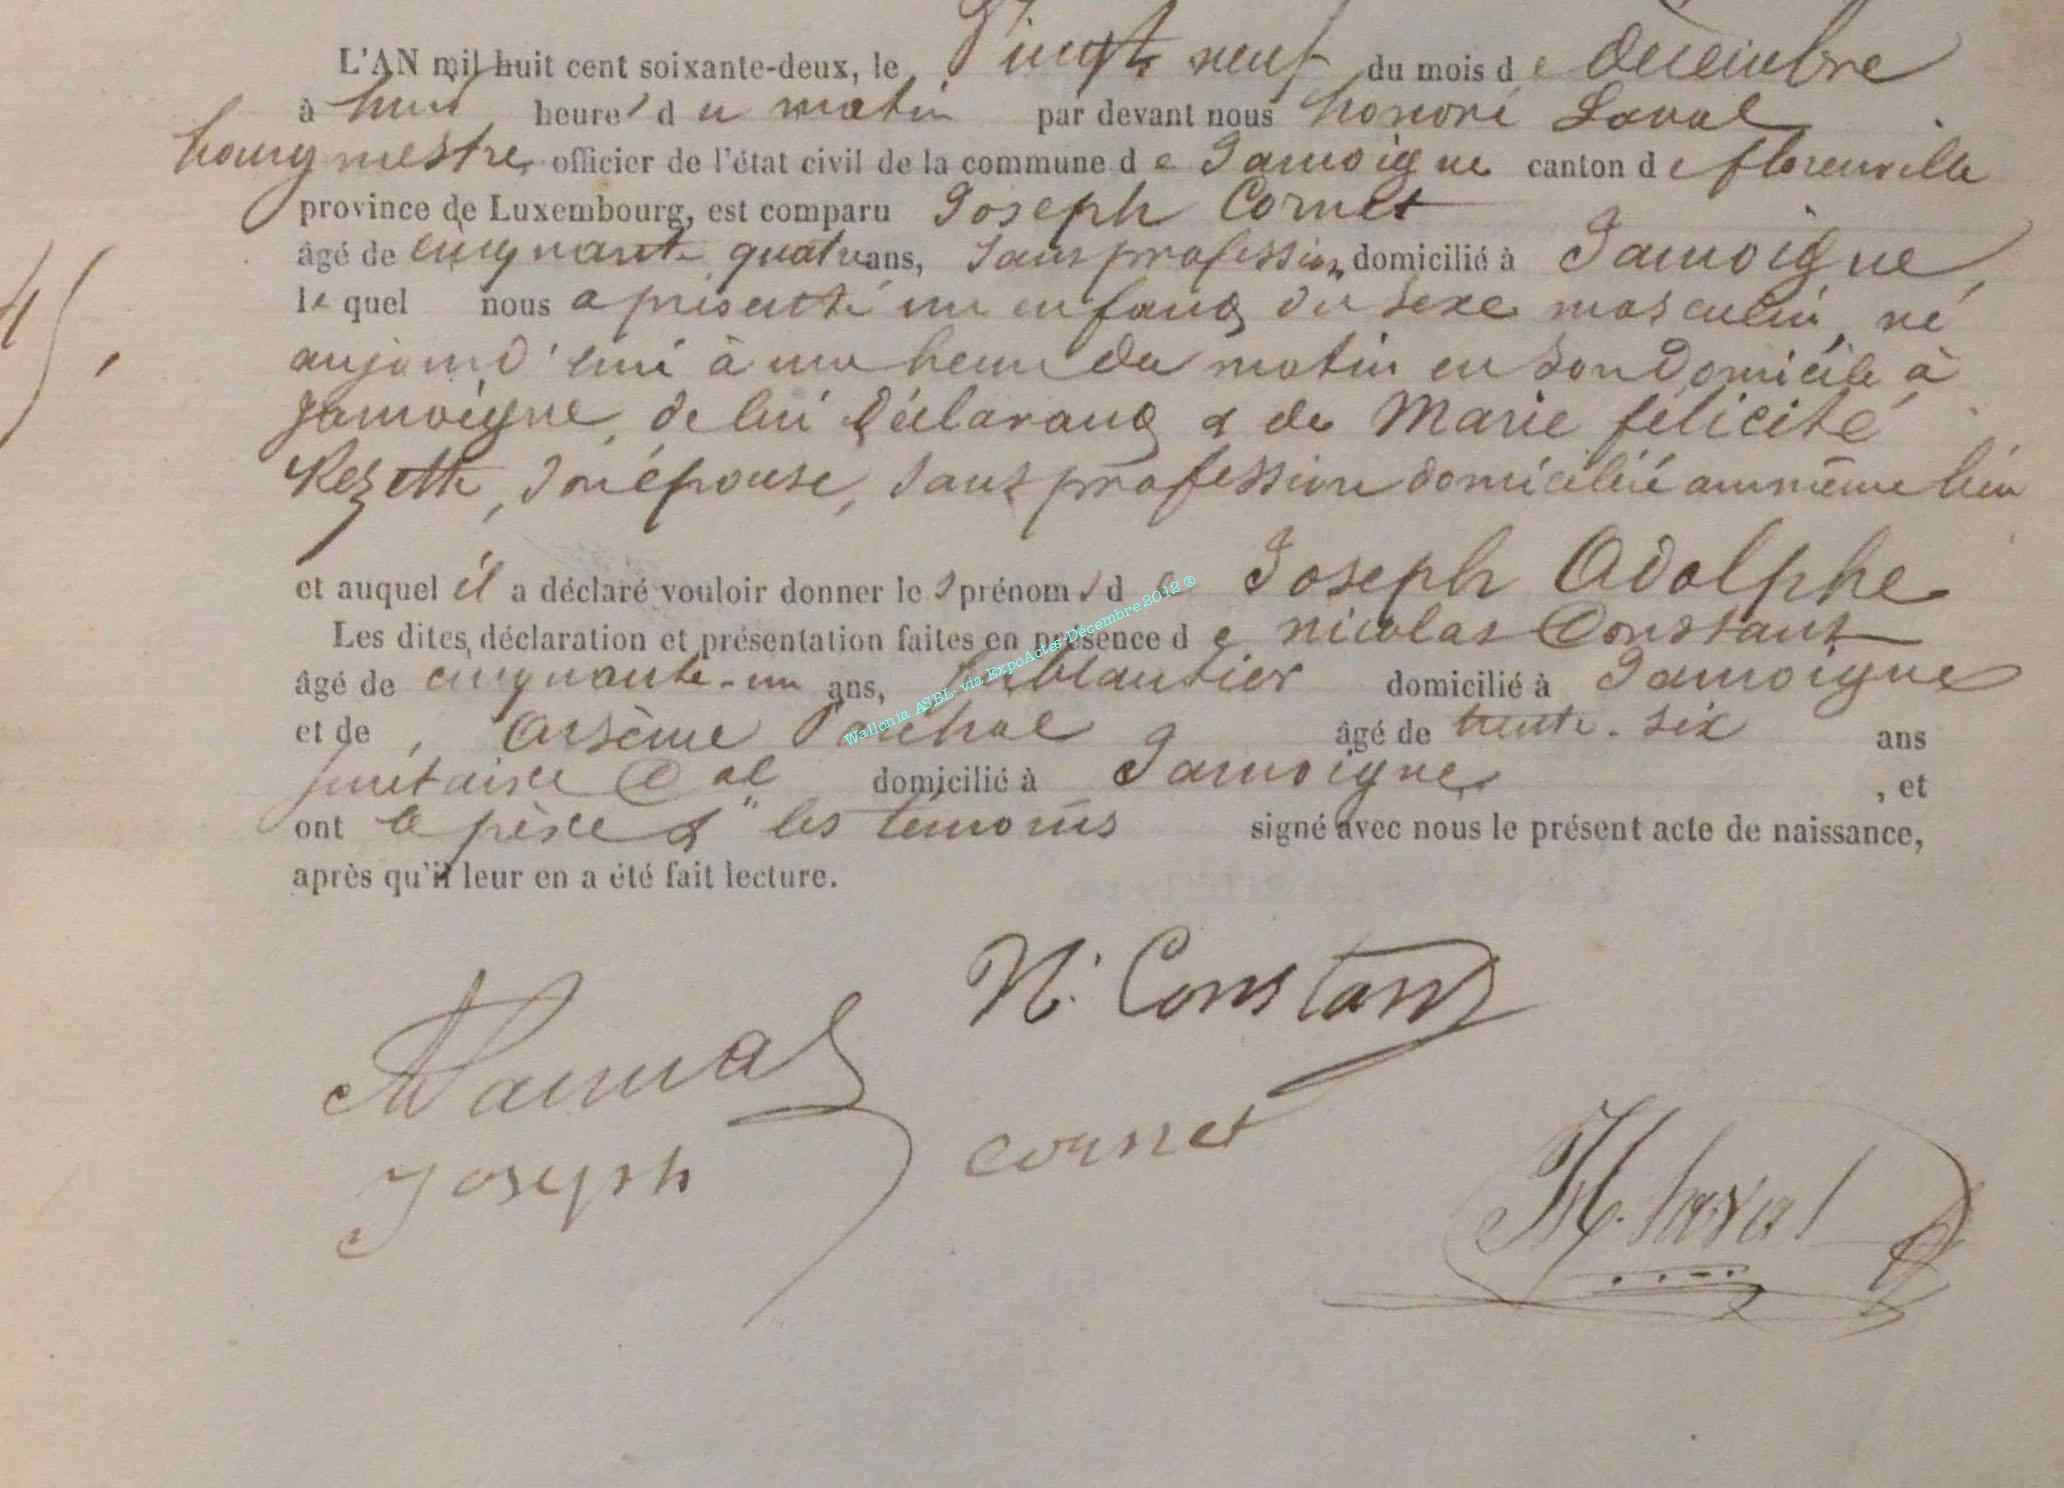 L'AN mil huit cent soixante-deux, le Vingt neuf du mois de décembre
à huit heures du matin par devant nous honoré Laval
bourgmestre officier de l'état civil de la commune de Jamoigne canton de florenville
province de Luxembourg, est comparu Joseph Cornet
âgé de cinquante quatre ans, sans profession domicilié à Jamoigne,
45,
lequel nous a présenté un enfant du sexe masculin, né
aujourd'hui à une heure du matin en son domicile à
Jamoigne, de lui déclarant & de Marie félicité
Rezette, son épouse, sans profession domiciliée au même lieu
et auquel il a déclaré vouloir donner les prénoms de Joseph Adolphe
Les dites déclaration et présentation faites en présence de nicolas Constant
âgé de cinquante-un ans, ferblantier domicilié à Jamoigne
et de, Arsène âgé de trente-six ans
Secrétaire Cal domicilié à Jamoigne, et
ont le père & les témoins signé avec nous le présent acte de naissance,
après qu'il leur en a été fait lecture.
Wallonia ASBL via ExpoActes Décembre 2012 ®
N. Constant
Joseph cornet
H. Laval